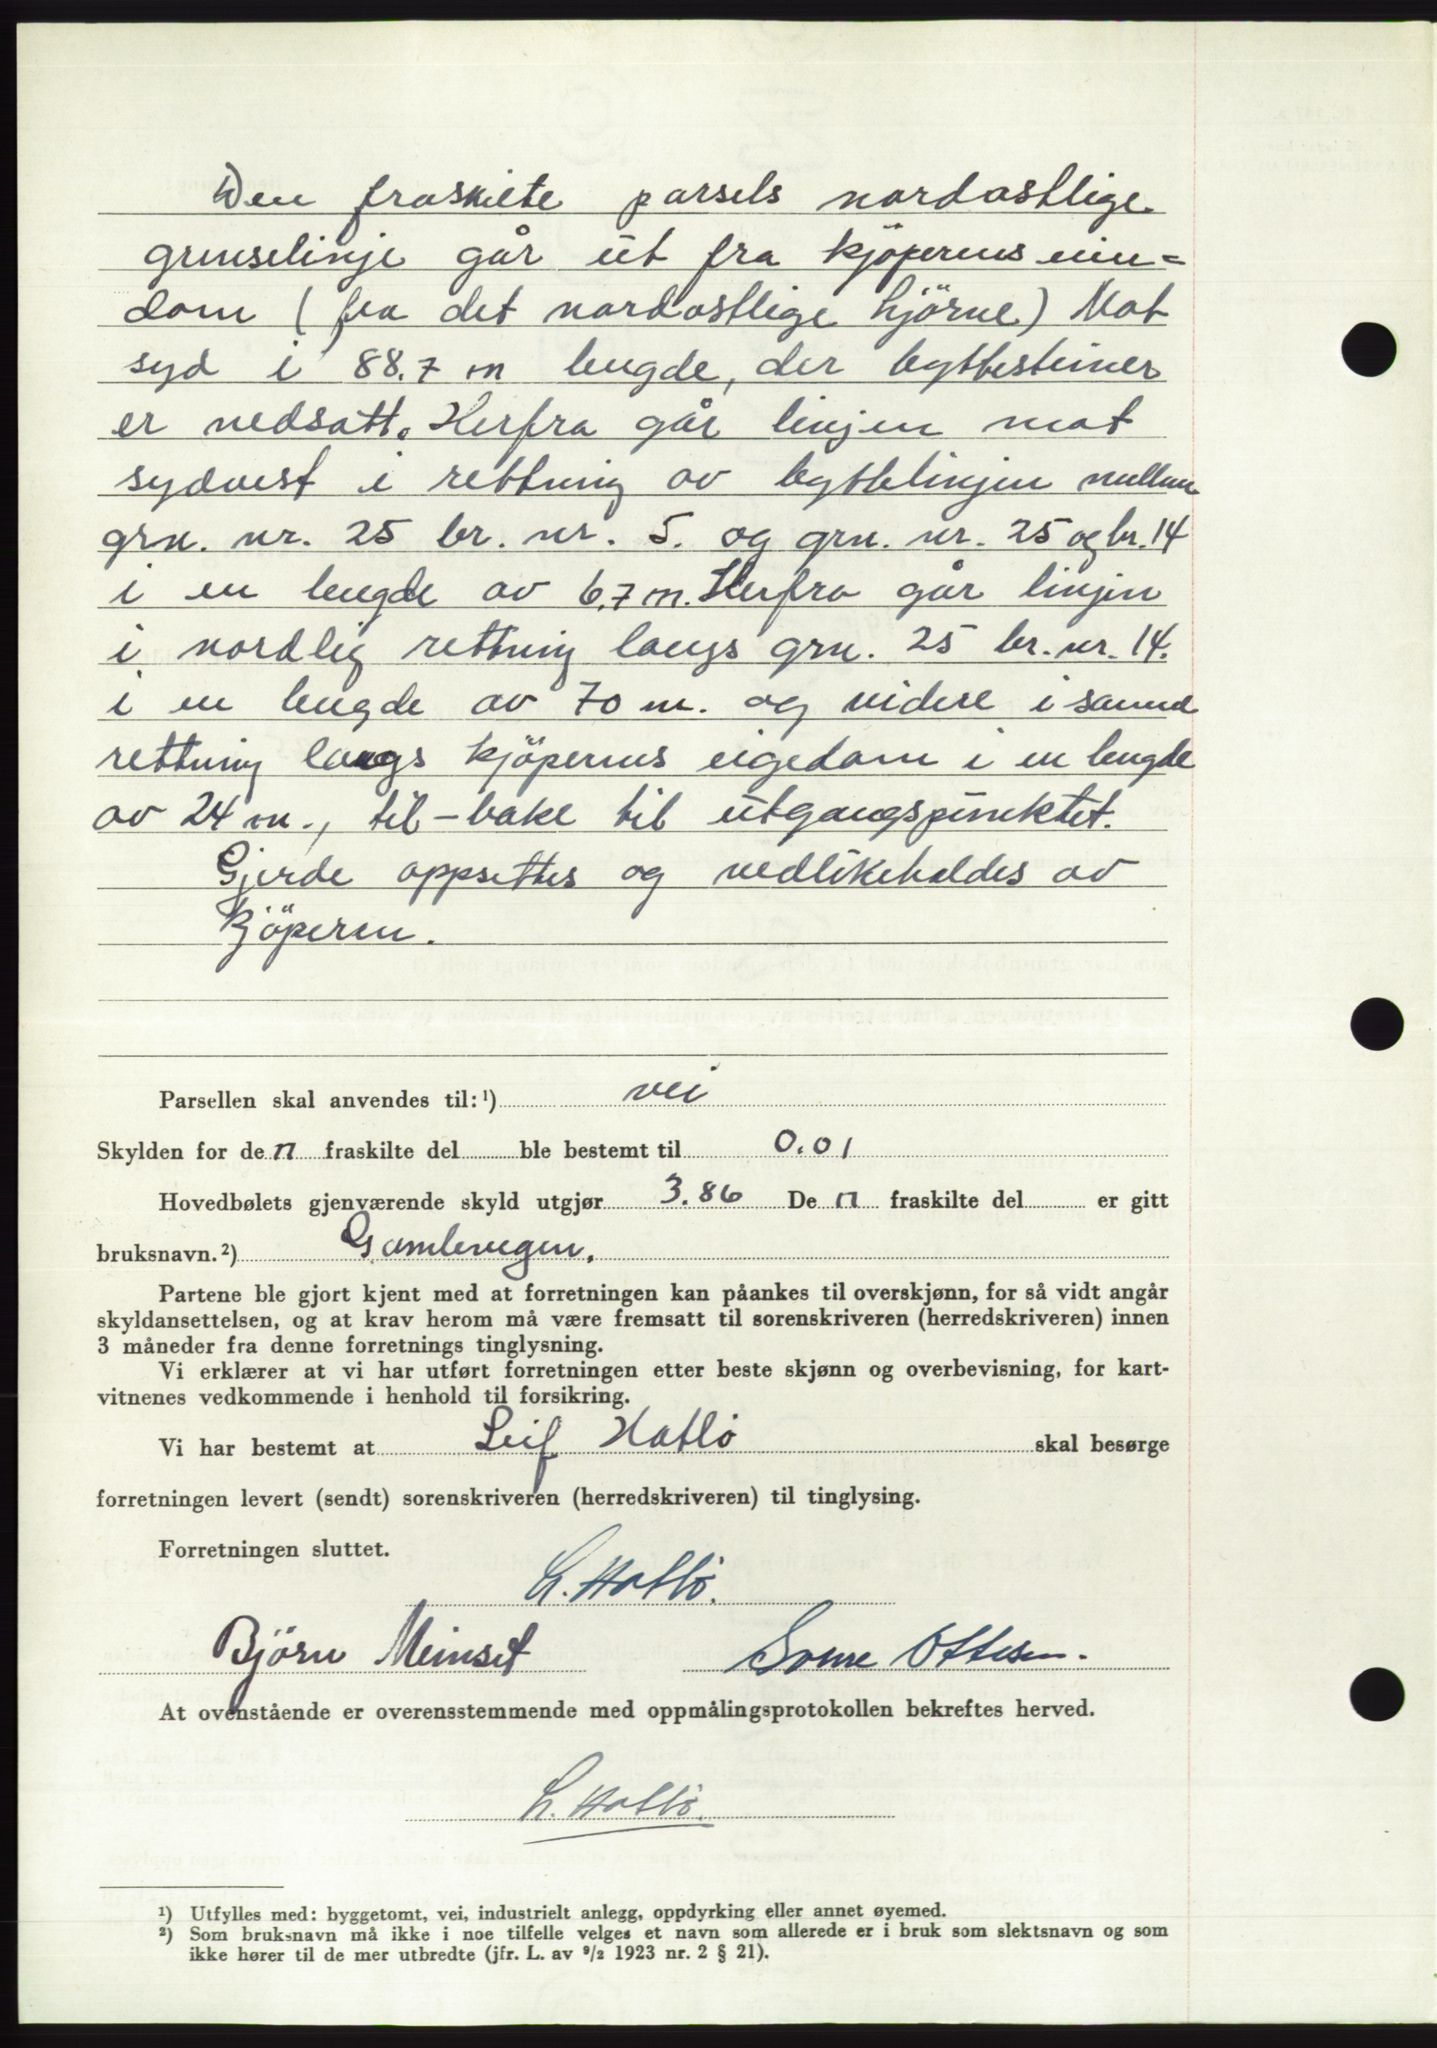 Den fraskilte parsels nordøstlige
grenselinje går ut fra kjöperens eien-
dom (fra det nordøstlige hjörne) Mot
syd i 88.7 m lengde, der byttesteiner
er nedsatt. Herfra går linjen mot
sydvest i rettning av byttelinjen mellem
grn. nr. 25 br. nr. 5. og grn. nr. 25 og br. 14
i en lengde av 6,7 m. Herfra går linjen
i nordlig rettning langs grn. 25 br. nr. 14.
i en lengde av 70 m. og videre i samme
rettning langs kjöperens eigedom i en lengde
av 24 m., til-bake til utgangspunktet.
Gjerde oppsettes og vedlikeholdes av
kjöperen.
Parsellen skal anvendes til: ¹) vei
Skylden for den fraskilte del ble bestemt til 0.01
Hovedbølets gjenværende skyld utgjør 3.86 Den fraskilte del er gitt
bruksnavn. ²) Gamlevegen.
Partene ble gjort kjent med at forretningen kan påankes til overskjønn, for så vidt angår
skyldansettelsen, og at krav herom må være fremsatt til sorenskriveren (herredskriveren) innen
3 måneder fra denne forretnings tinglysning.
Vi erklærer at vi har utført forretningen etter beste skjønn og overbevisning, for kart-
vitnenes vedkommende i henhold til forsikring.
Vi har bestemt at Leif Hatlö skal besørge
forretningen levert (sendt) sorenskriveren (herredskriveren) til tinglysing.
Forretningen sluttet.
L. Hatlö.
Björn Meinset Ottesen.
At ovenstående er overensstemmende med oppmålingsprotokollen bekreftes herved.
L. Hatlö.
¹) Utfylles med: byggetomt, vei, industrielt anlegg, oppdyrking eller annet øyemed.
²) Som bruksnavn må ikke i noe tilfelle velges et navn som allerede er i bruk som slektsnavn og som
ikke hører til de mer utbredte (jfr. L. av ⁹/₂ 1923 nr. 2 § 21).